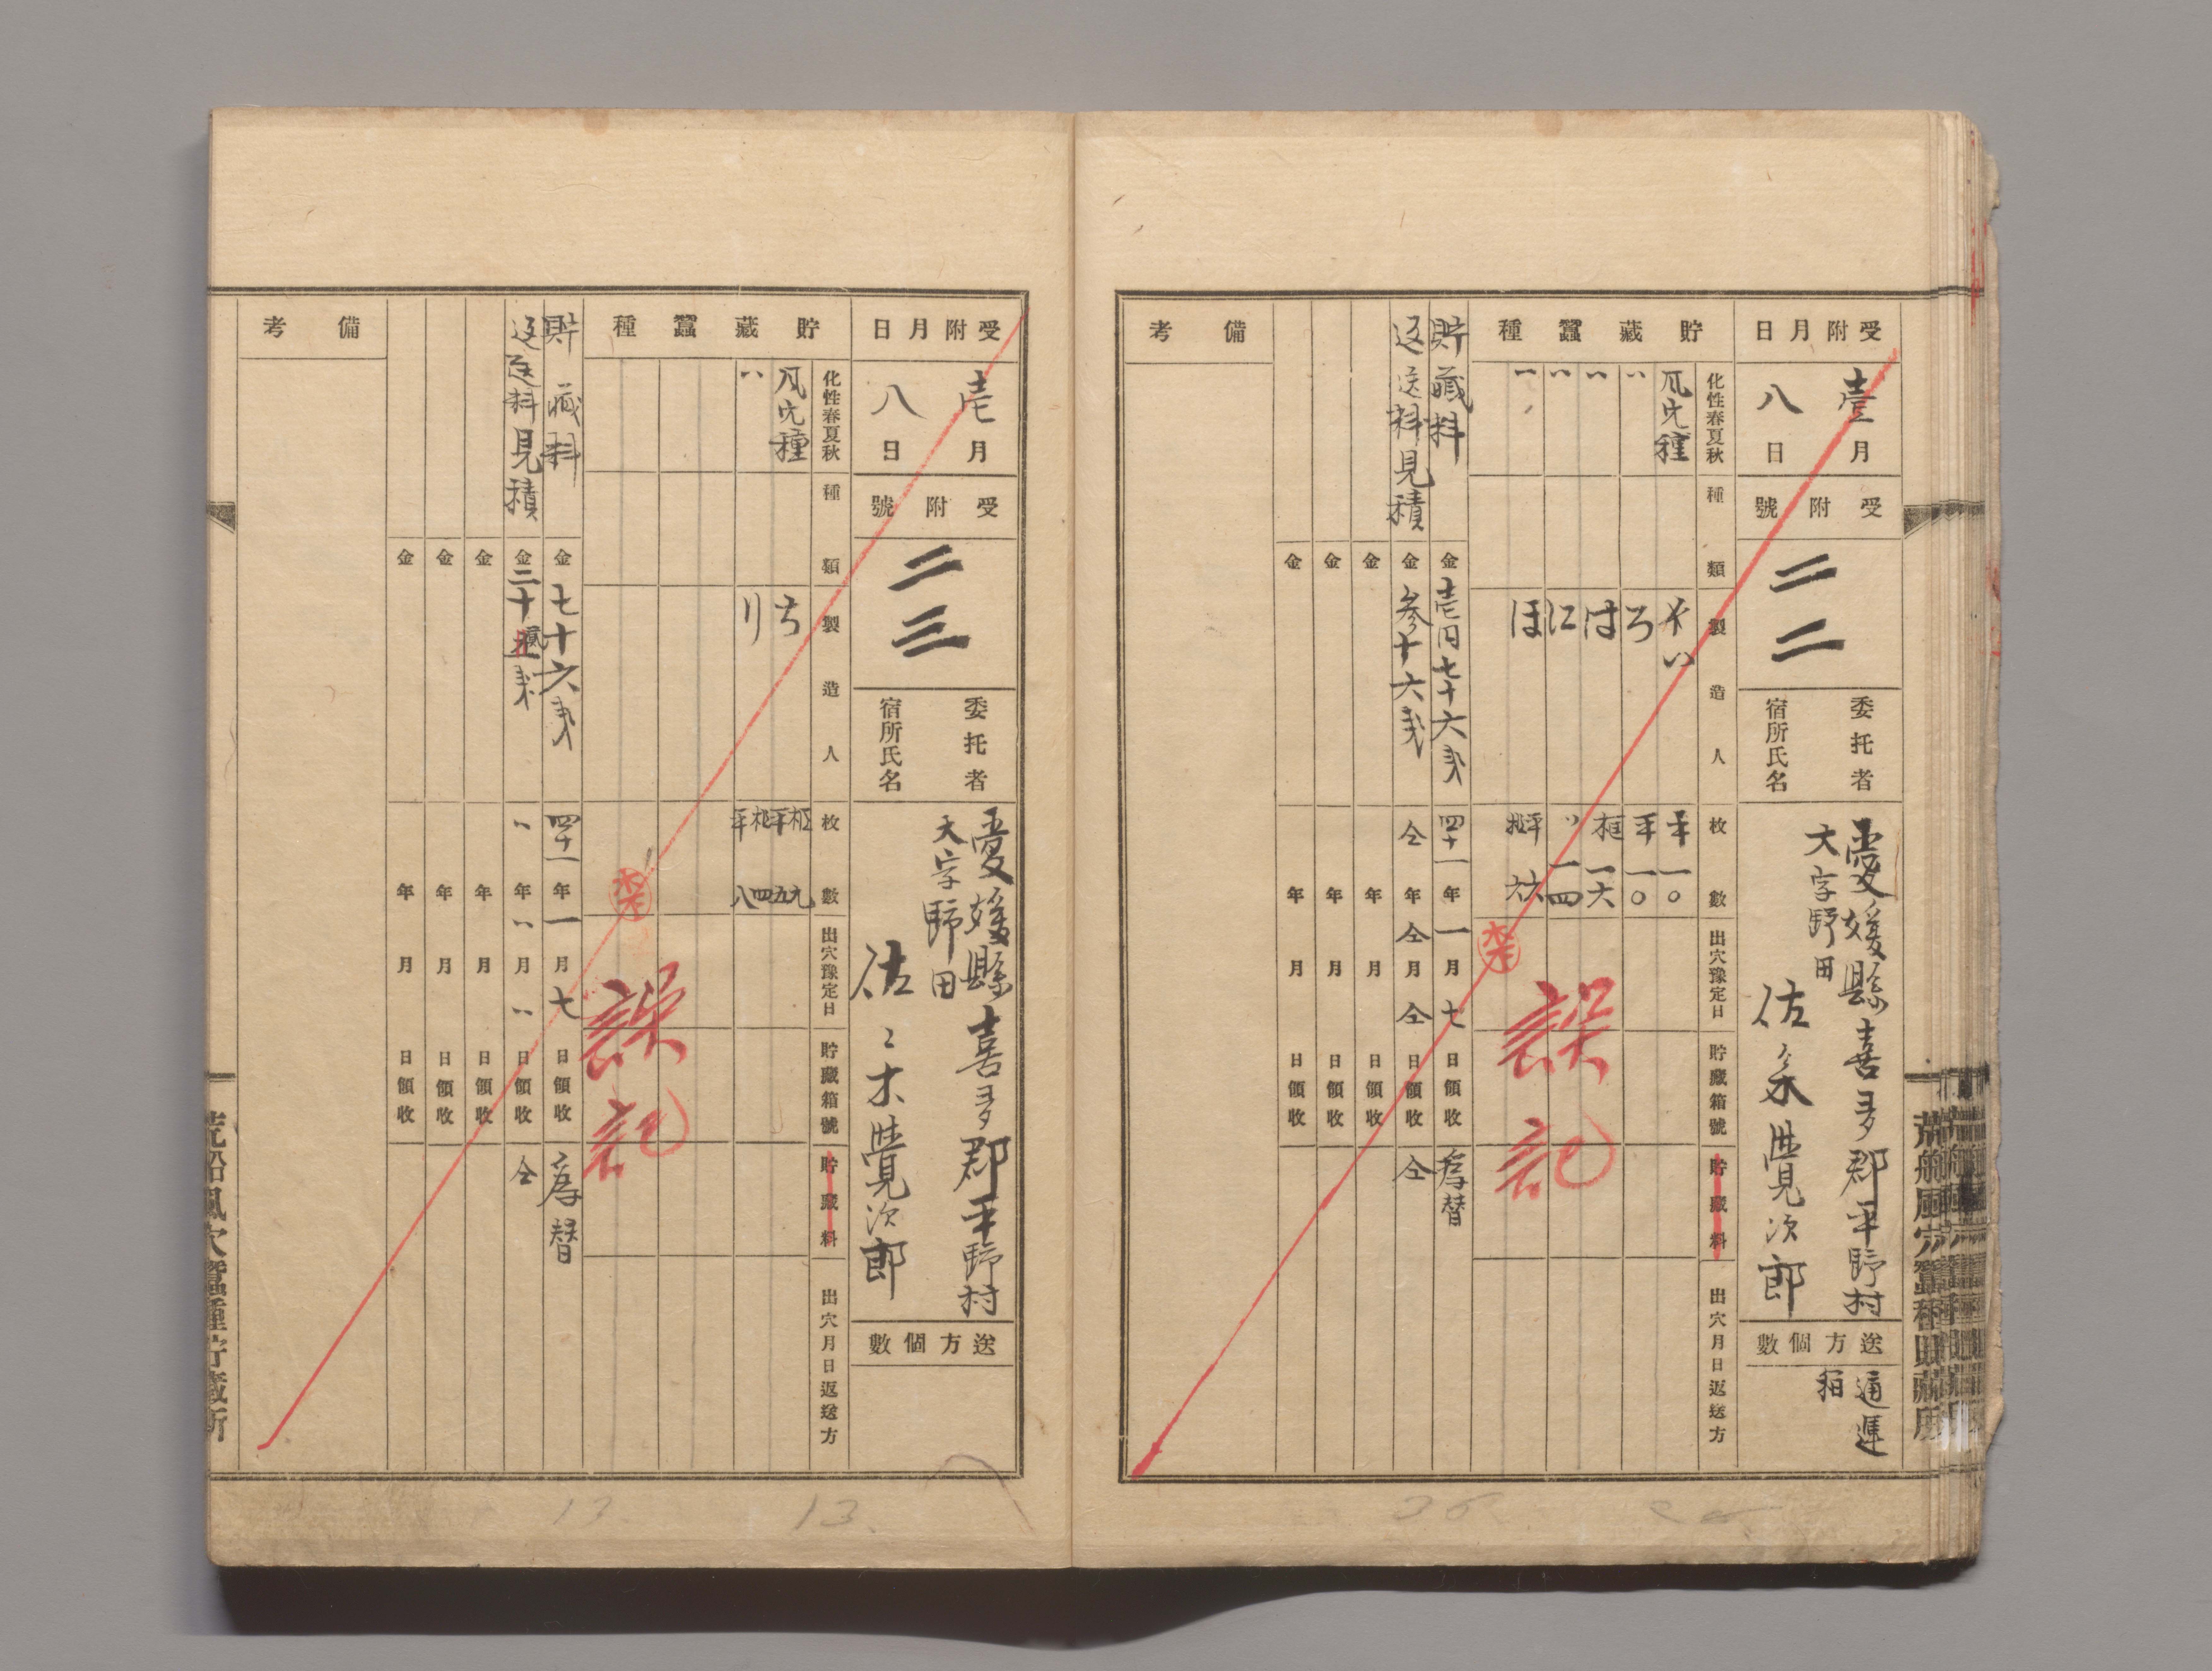 荒船風穴蠶種貯藏所
受附月日
壹月
八日
受附號
二二
委托者
宿所氏名
愛媛縣喜多郡平野村
大字野田
佐々木覺次郎
送方個數
通運
箱
貯藏蠶種
化性春夏秋
種類
製造人
枚數
出穴豫定日
貯藏箱號
貯藏料
出穴月日返送方
風穴種 い 平一〇
〃 ろ 平一〇
〃 は 框一六
〃 に 〃 一四
ほ 平六
框六
誤記
貯藏料 金壱円七十六戔 四十一年一月七日領收 為替
返送料見積 金参十六戔 仝年仝月仝日領收 仝
金 年月日領收
金 年月日領收
金 年月日領收
備考
受附月日
壱月
八日
受附號
二三
委托者
宿所氏名
愛媛縣喜多郡平野村
大字野田
佐々木覺次郎
送方個數
貯藏蠶種
化性春夏秋
種類
製造人
枚數
出穴豫定日
貯藏箱號
貯藏料
出穴月日返送方
風穴種 ち 框九
平五
〃 り 框四
平八
誤記
貯藏料 金七十六戔 四十一年一月七日領收 為替
返送料見積 金二十戔 〃年〃月〃日領收 仝
金 年月日領收
金 年月日領收
金 年月日領收
備考
荒船風穴蠶種貯藏所
13.
13.